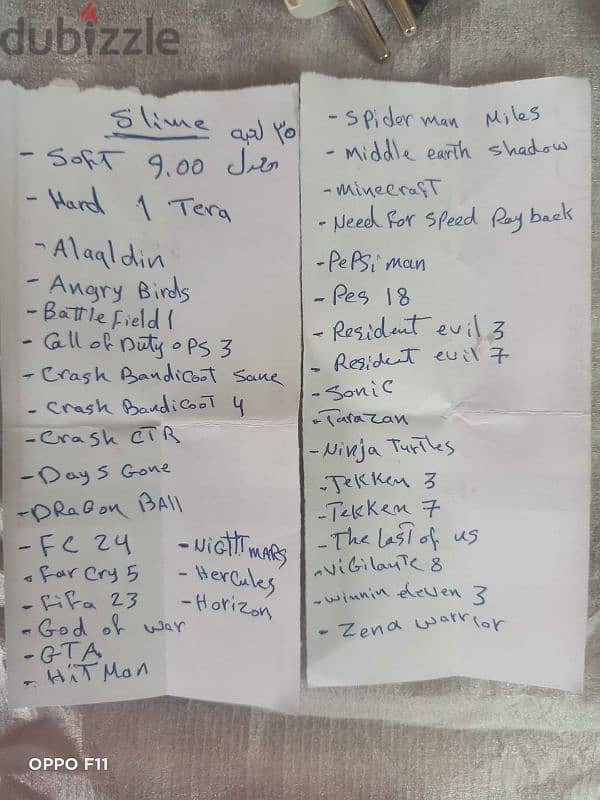 dubizzle
Slime ٣٥ لعبه
- Soft 9.00 معدل
- Hard 1 Tera
- Alaaldin
- Angry Birds
- Battle field 1
- Call of Duty oPS 3
- Crash Bandicoot Sane
- Crash Bandicoot 4
- Crash CTR
- Days Gone
- DRagon BAll
- FC 24
- Far Cry 5
- Fifa 23
- God of war
- GTA
- HiT Man
- NIGHTMARS
- Hercules
- Horizon
- Spider man Miles
- Middle earth shadow
- minecraft
- Need For Speed Pay back
- PePSi man
- Pes 18
- Resident evil 3
- Resident evil 7
- Sonic
- Tarazan
- Ninja Turtles
- Tekken 3
- Tekken 7
- The last of us
- ViGilante 8
- winnin eleven 3
- Zena warrior
OPPO F11